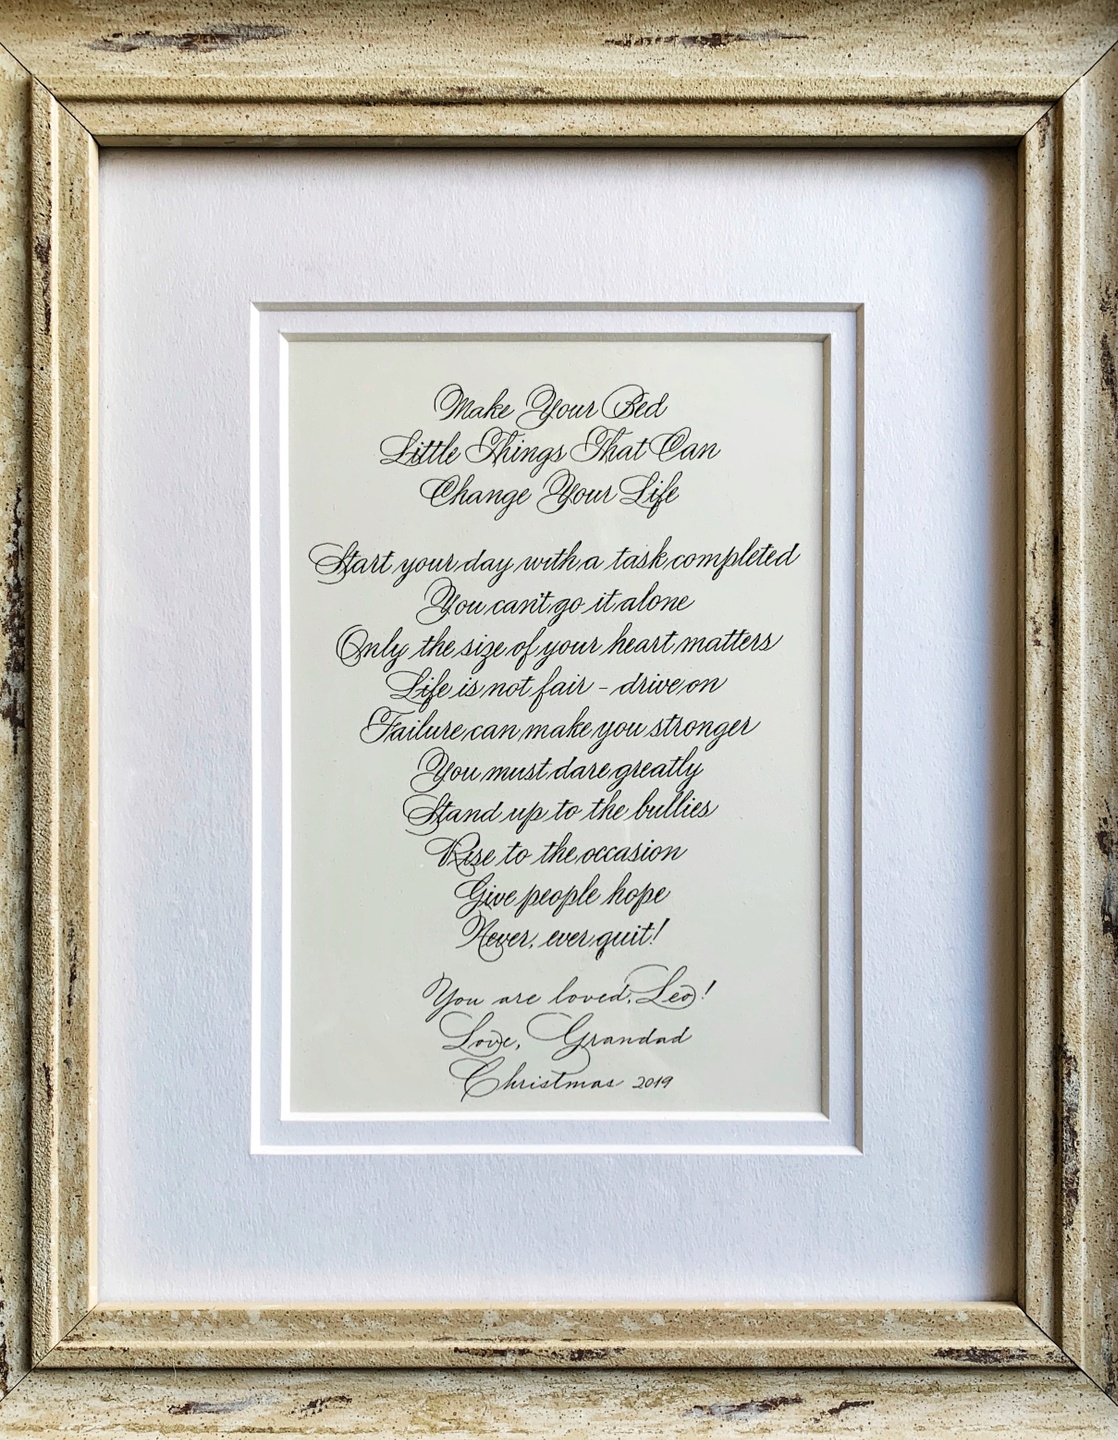 Make Your Bed
Little Things That Can
Change Your Life
Start your day with a task completed
You can't go it alone
Only the size of your heart matters
Life is not fair - drive on
Failure can make you stronger
You must dare greatly
Stand up to the bullies
Rise to the occasion
Give people hope
Never, ever quit!
You are loved, Leo!
Love, Grandad
Christmas 2019